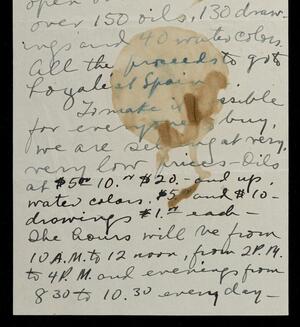 open
over 150 oils, 130 draw-
ings and 40 watercolors.
All the proceeds to go to
Loyalist Spain.
To make it possible
for everyone to buy,
we are selling at very,
very low prices - Oils
at $5.00 10.00 $20.- and up.
water colors. $5.00 and $10-
drawings $1.00 each -
The hours will be from
10 A.M. to 12 noon, from 2 P.M.
to 4 P.M. and evenings from
8 30 to 10.30 every day -